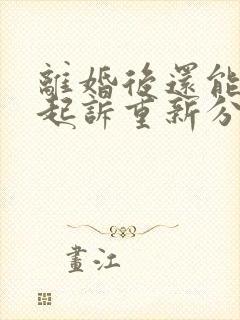 離婚後還能
起訴重新分
畫江